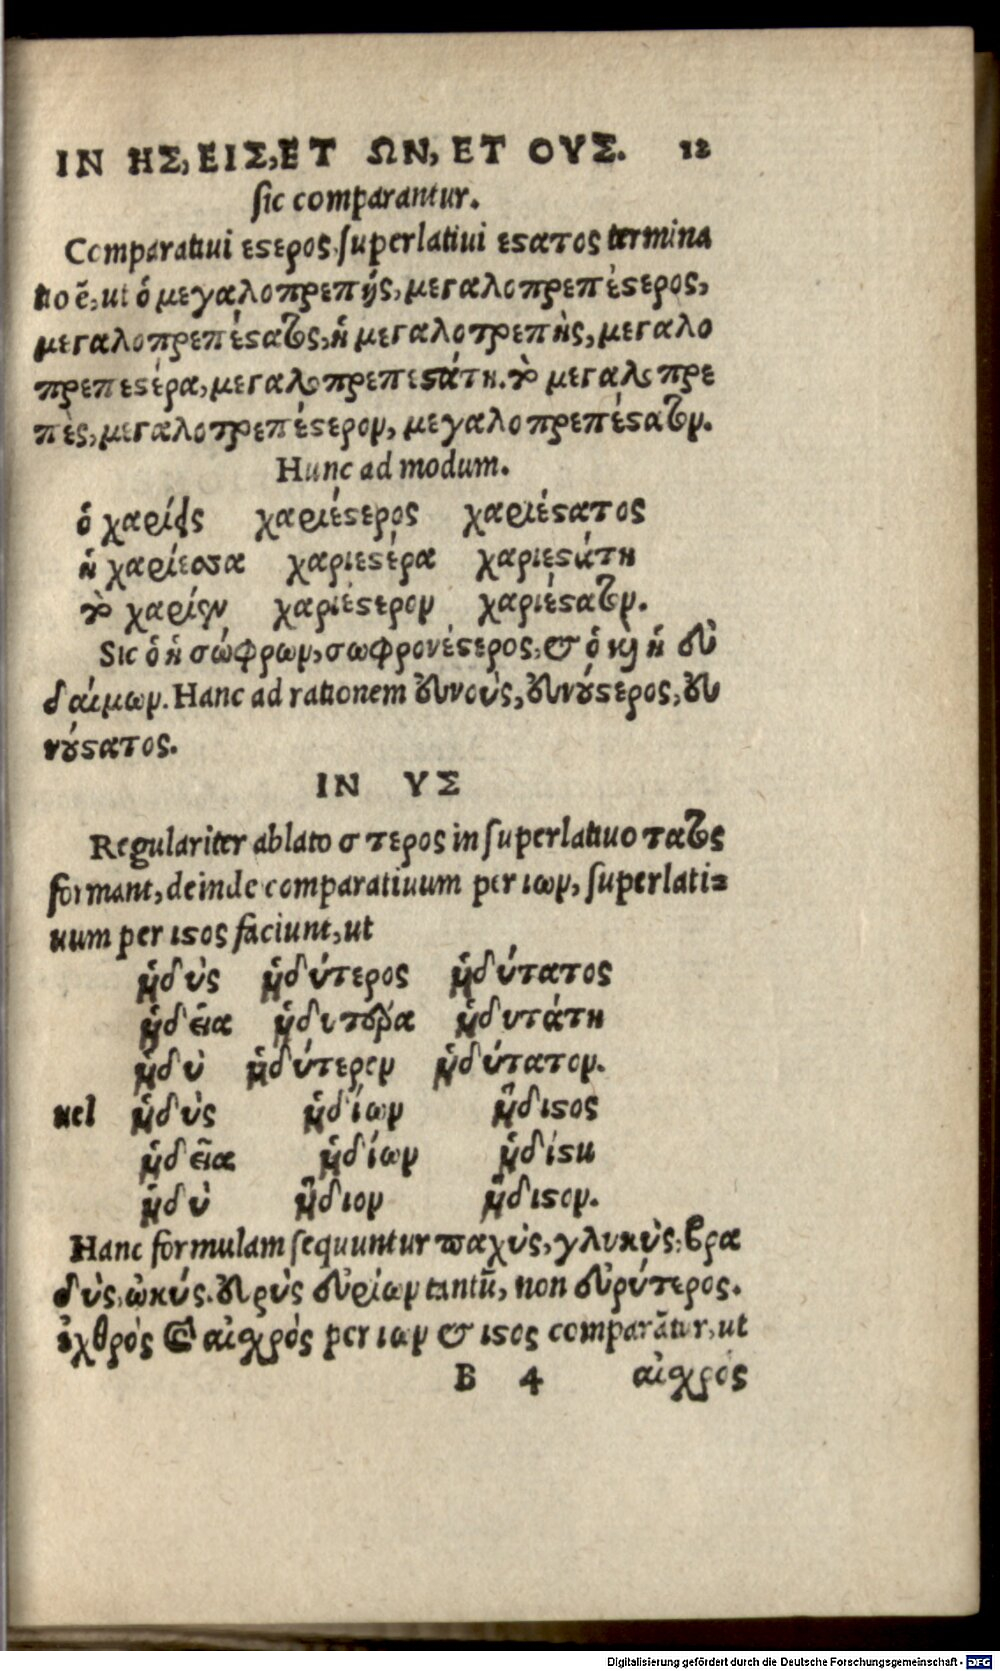 IN ΗΣ, ΕΙΣ, ET ΩΝ, ET ΟΥΣ. 12
sic comparantur.
Comparatiui εϛερος, superlatiui εϛατος termina
tio ẽ, ut ὁ μεγαλοπρεπής, μεγαλοπρεπέϛερος,
μεγαλοπρεπέϛατος, ἡ μεγαλοπρεπὴς, μεγαλο
πρεπεϛέρα, μεγαλοπρεπεϛάτη. τὸ μεγαλοπρε
πὲς, μεγαλοπρεπέϛερον, μεγαλοπρεπέϛατον.
Hunc ad modum.
ὁ χαρίεις χαριέϛερος χαριέϛατος
ἡ χαρίεσσα χαριεϛέρα χαριεϛάτη
τὸ χαρίεν χαριέϛερον χαριέϛατον.
Sic ὁ ἡ σώφρων, σωφρονέϛερος, & ὁ κὶ ἡ εὐ
δαίμων. Hanc ad rationem εὐνοὺς, εὐνούϛερος, εὐ
νούϛατος.
IN ΥΣ
Regulariter ablato σ τερος in superlatiuo τατος
formant, deinde comparatiuum per ιων, superlati=
uum per ιϛος faciunt, ut
ἡδὺς ἡδύτερος ἡδύτατος
ἡδεῖα ἡδυτέρα ἡδυτάτη
ἡδὺ ἡδύτερον ἡδύτατον.
uel ἡδὺς ἡδίων ἥδιϛος
ἡδεῖα ἡδίων ἡδίϛη
ἡδὺ ἥδιον ἥδιϛον.
Hanc formulam sequuntur παχὺς, γλυκὺς, βρα
δὺς, ὠκύς. εὐρὺς εὐρίων tantũ, non εὐρύτερος.
ἐχθρὸς & αἰσχρὸς per ιων & ιϛος comparãtur, ut
B 4 αἰσχρὸς
Digitalisierung gefördert durch die Deutsche Forschungsgemeinschaft - DFG